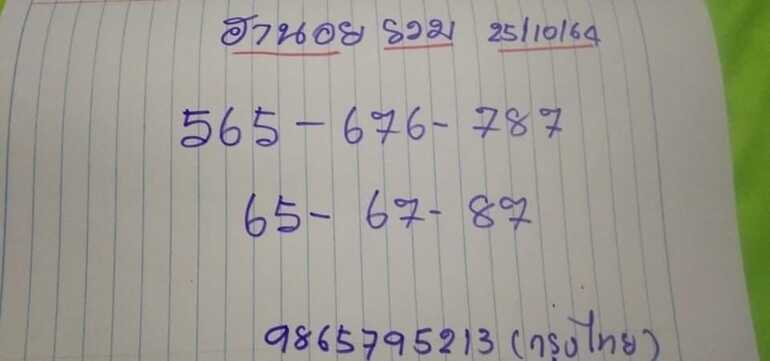 ฮานอย รวม 25/10/64
565 - 676 - 787
65 - 67 - 87
9865795213 (กรุงไทย)